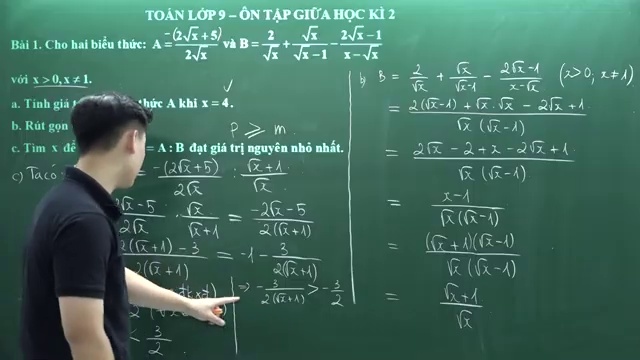 TOÁN LỚP 9 – ÔN TẬP GIỮA HỌC KÌ 2
Bài 1. Cho hai biểu thức: A = -(2√x + 5)/(2√x) và B = 2/√x + √x/(√x - 1) - (2√x - 1)/(x - √x)
với x > 0, x ≠ 1.
a. Tính giá t thức A khi x = 4.
b. Rút gọn
P ⩾ m
c. Tìm x để = A : B đạt giá trị nguyên nhỏ nhất.
c) Ta có = -(2√x + 5)/(2√x) : (√x + 1)/√x
√x - 5/(2√x) . √x/(√x + 1) = (-2√x - 5)/(2(√x + 1))
2(√x + 1) - 3/(2(√x + 1)) = -1 - 3/(2(√x + 1))
< 3/2
⇒ -3/(2(√x + 1)) > -3/2
b) B = 2/√x + √x/(√x - 1) - (2√x - 1)/(x - √x) (x > 0; x ≠ 1)
= (2(√x - 1) + √x . √x - 2√x + 1)/(√x (√x - 1))
= (2√x - 2 + x - 2√x + 1)/(√x (√x - 1))
= (x - 1)/(√x (√x - 1))
= ((√x + 1)(√x - 1))/(√x (√x - 1))
= (√x + 1)/√x